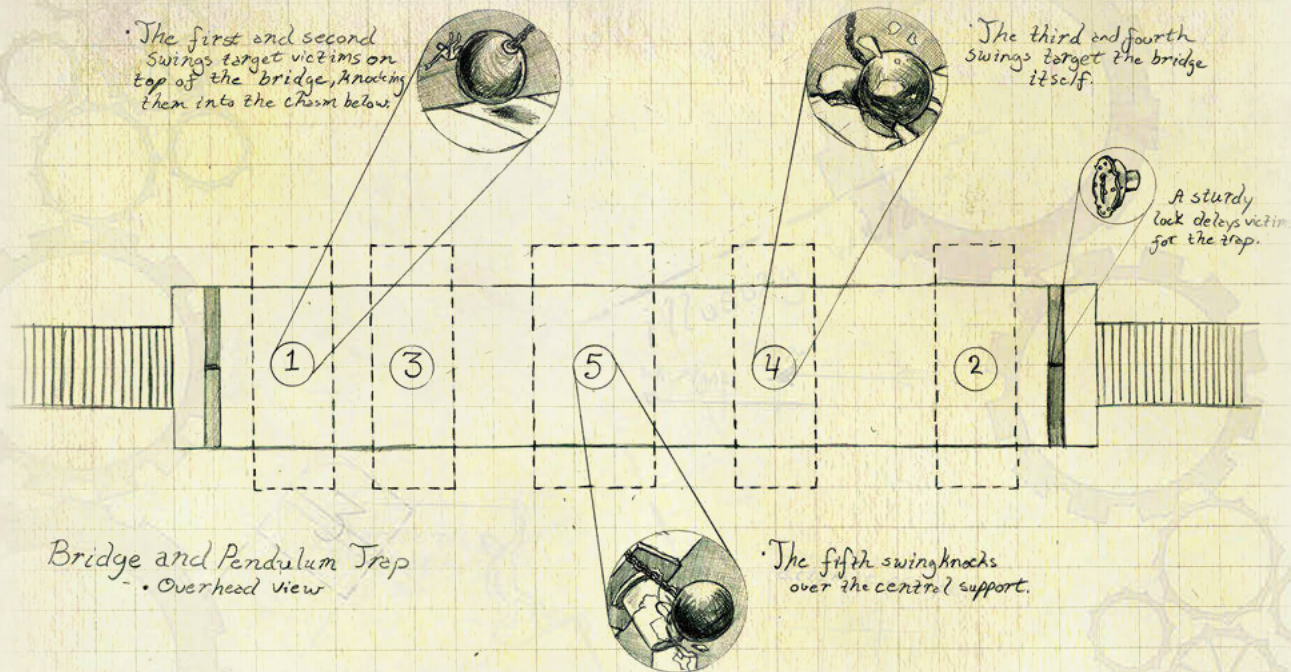 · The first and second
swings target victims on
top of the bridge, knocking
them into the chasm below.
· The third and fourth
swings target the bridge
itself.
A sturdy
lock delays victim
for the trap.
1
3
5
4
2
Bridge and Pendulum Trap
· Overhead view
· The fifth swing knocks
over the central support.